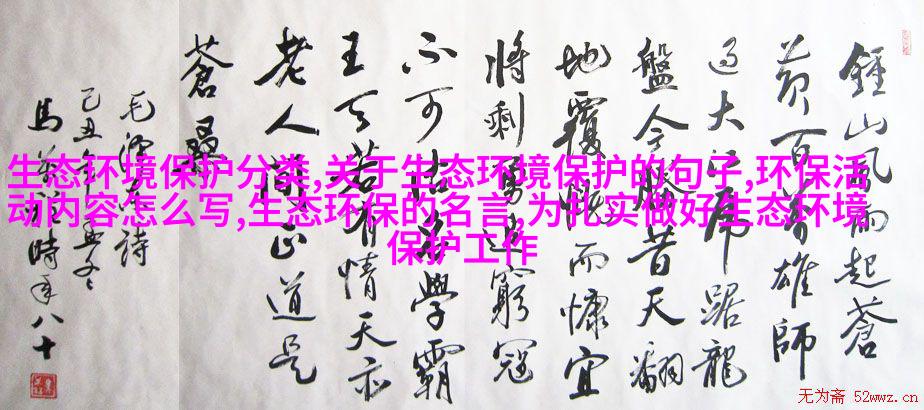 生态环境保护分类,关于生态环境保护的句子,环保活
动内容怎么写,生态环保的名言,为扎实做好生态环境
保护工作
鍾山風雨起蒼
黃百萬雄師
過大江虎踞龍
盤今勝昔天翻
地覆慨而慷宜
將剩勇追窮寇
不可沽名學霸
王天若有情天亦
老人間正道是
蒼桑
毛澤東詩
己丑年冬
馬時年八十
无为斋 52wwz.cn